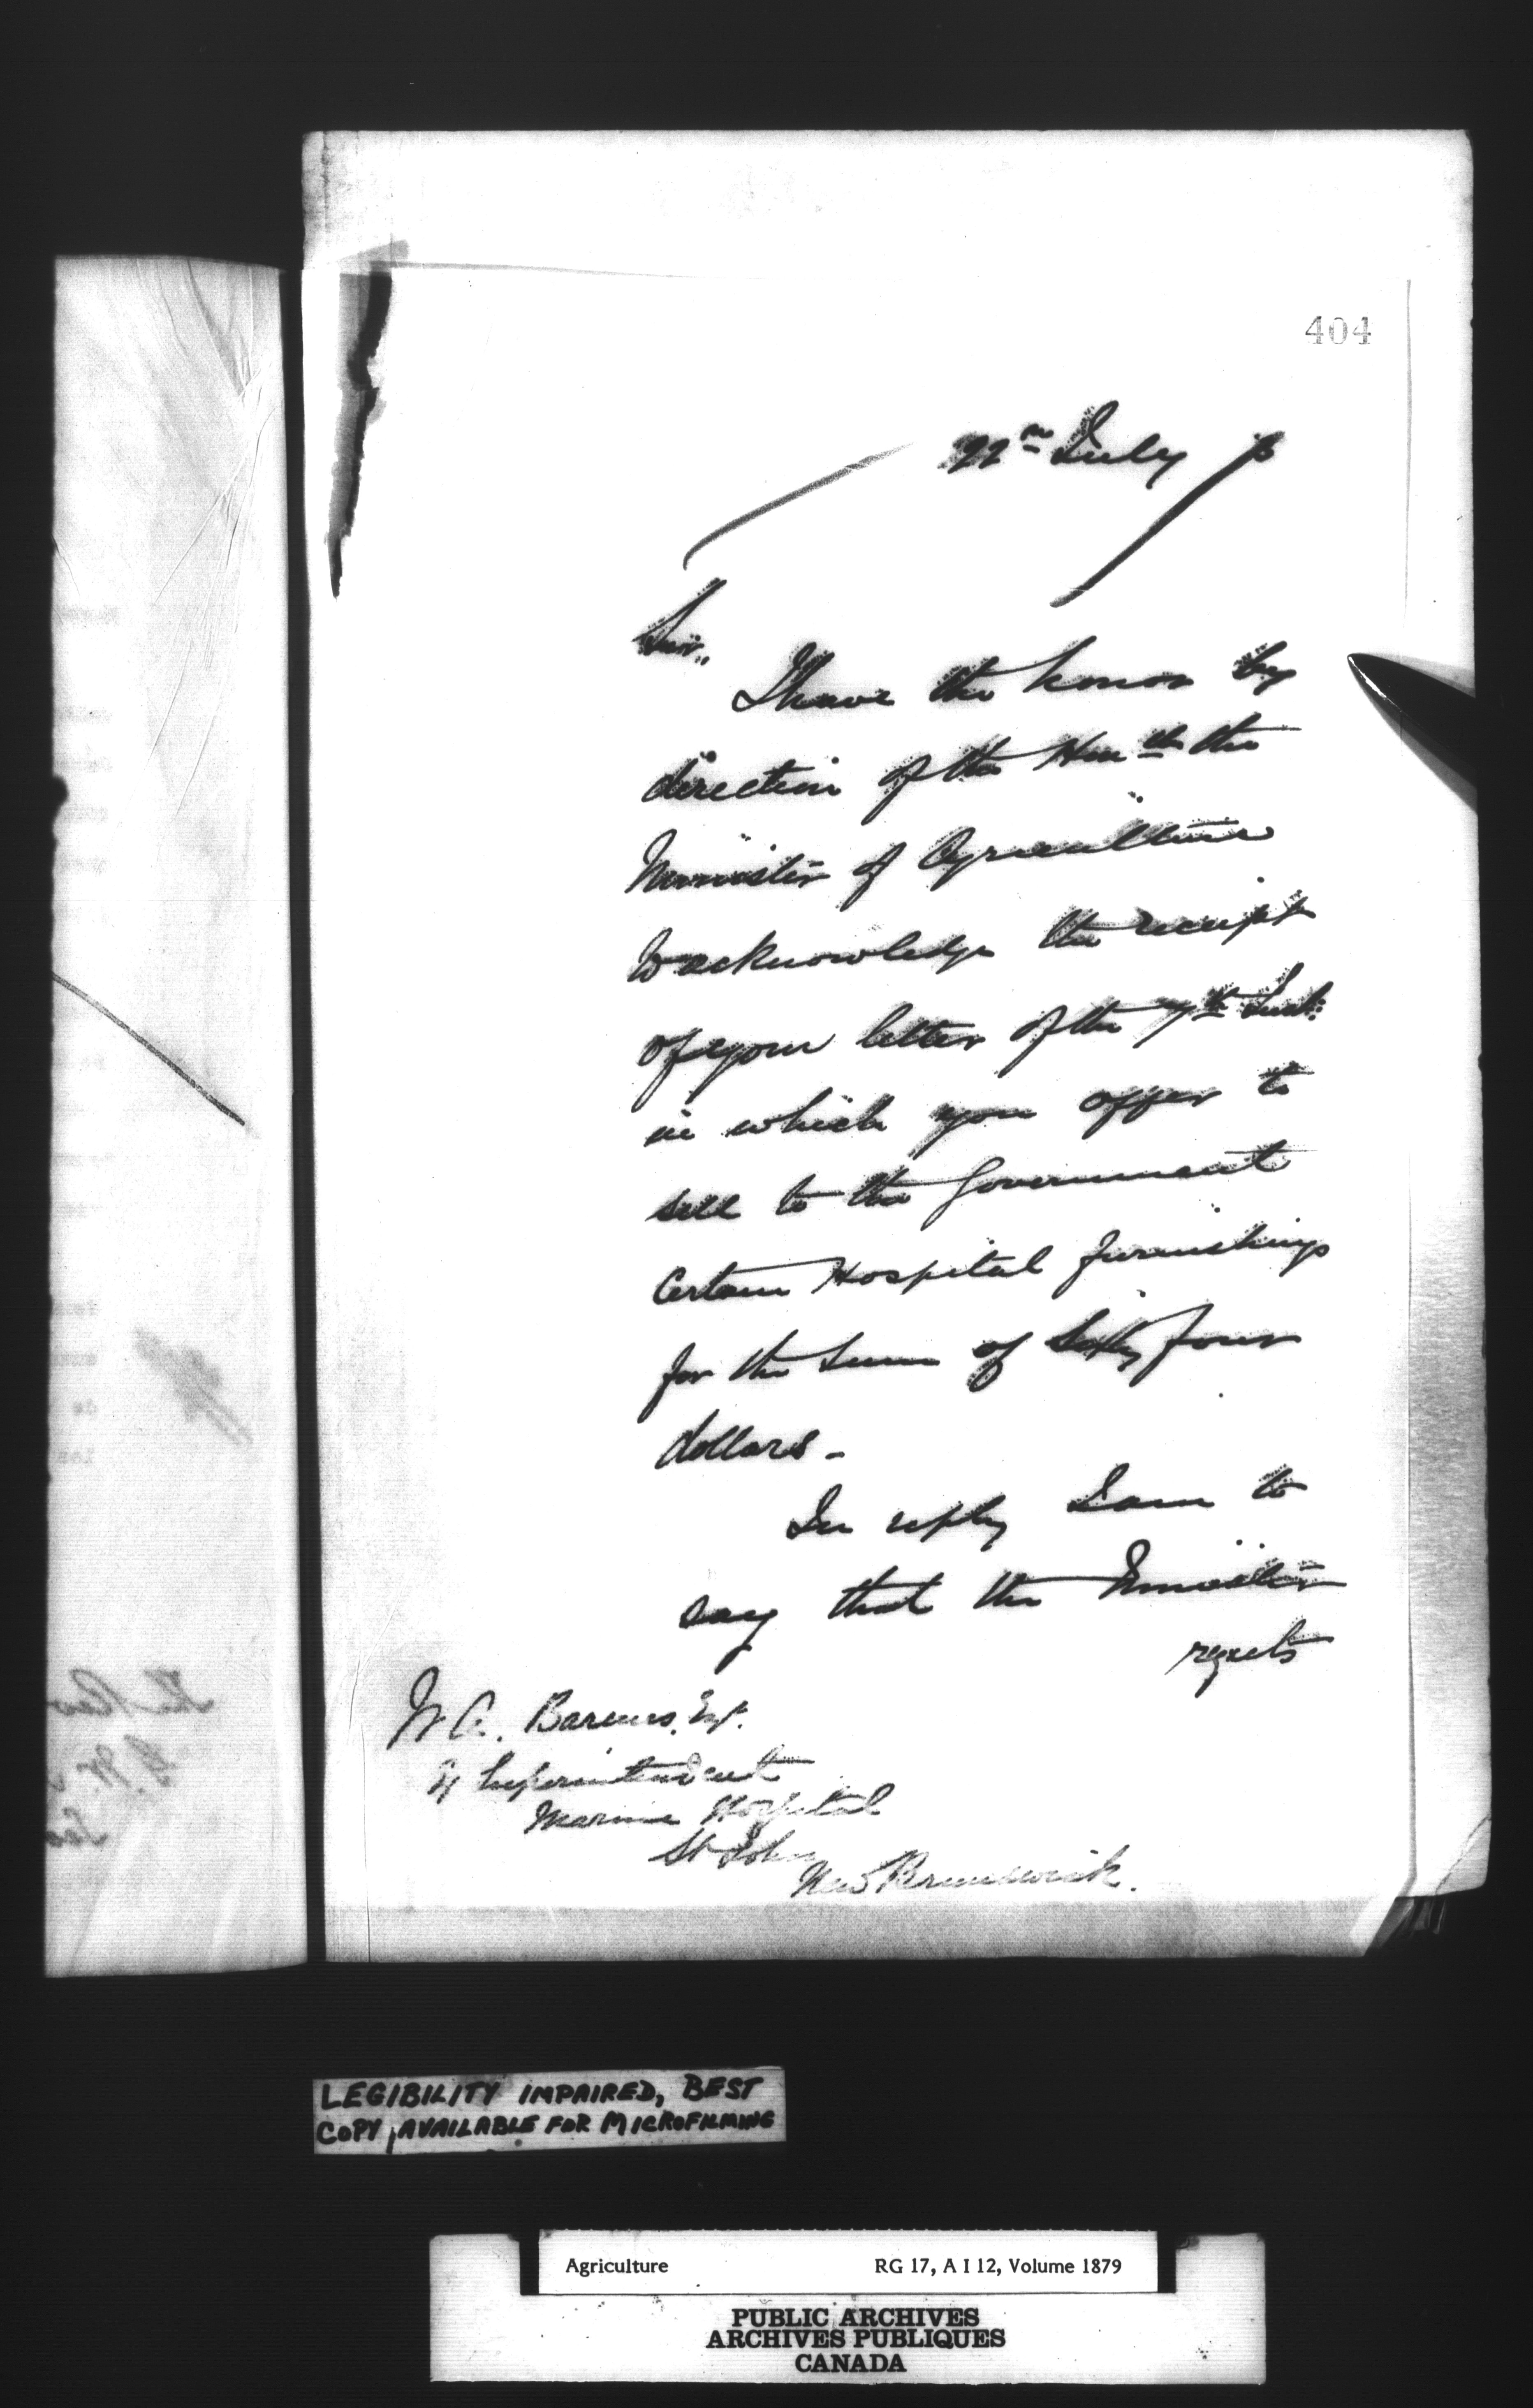 404
22nd July
Sir,
I have the honor by
direction of the Honble the
Minister of Agriculture
to acknowledge the receipt
of your letter of the 7th Inst:
in which you offer to
sell to the Government
Certain Hospital furnishings
for the Sum of Sixty four
dollars -
In reply I am to
say that the Minister
regrets
W. A. Esq.
Superintendent
Marine Hospital
St John
New Brunswick.
LEGIBILITY IMPAIRED, BEST
COPY AVAILABLE FOR MICROFILMING
Agriculture RG 17, A I 12, Volume 1879
PUBLIC ARCHIVES
ARCHIVES PUBLIQUES
CANADA